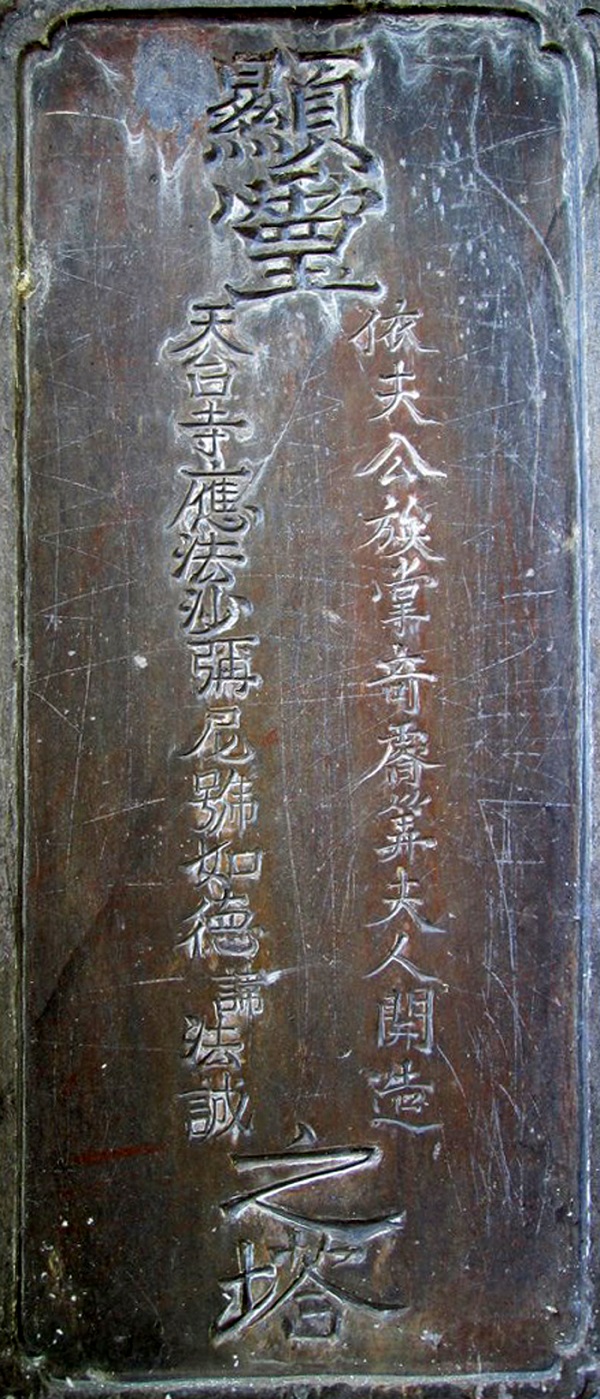 顯靈
依夫公族掌奇睿筭夫人開造
天台寺應法沙彌尼號如德諦法誠
之塔